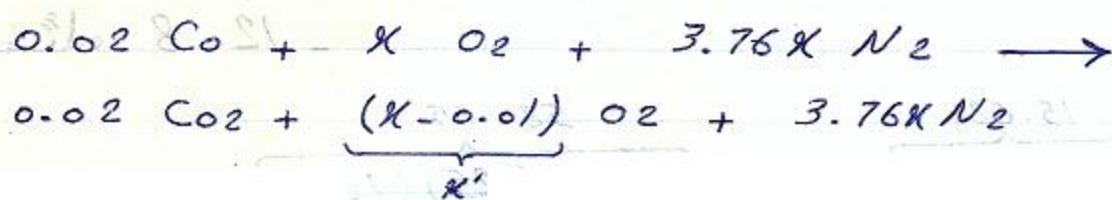 0.02 Co + x O2 + 3.76x N2 →
0.02 Co2 + (x-0.01) O2 + 3.76x N2
x'